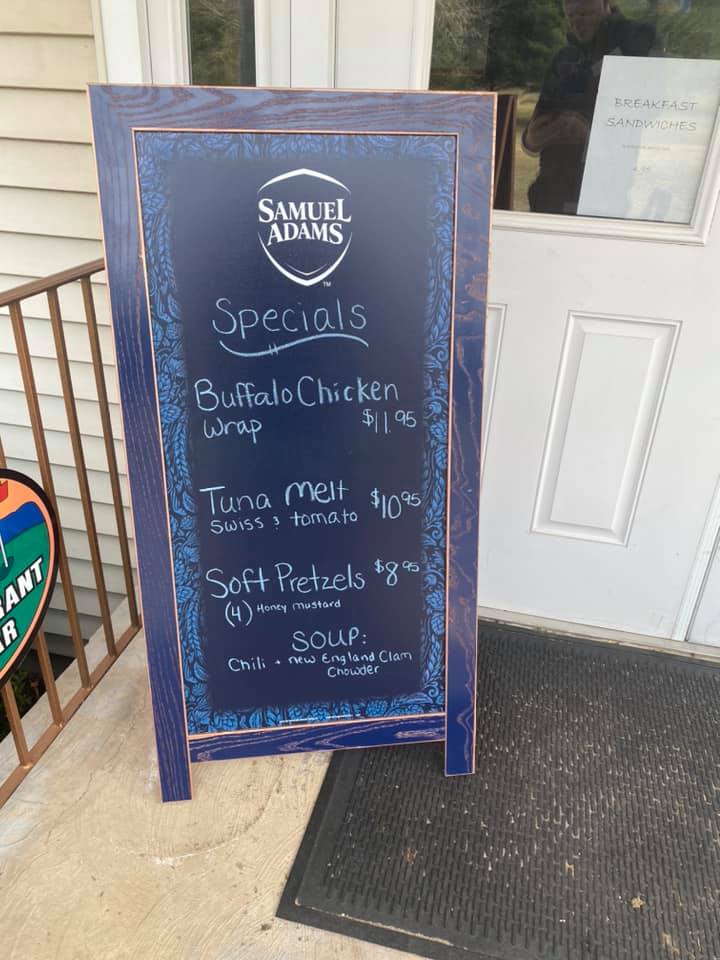 SAMUEL
ADAMS
TM
Specials
Buffalo Chicken
Wrap $11.95
Tuna Melt $10 95
Swiss & tomato
Soft Pretzels $8 95
(4) Honey mustard
SOUP:
Chili + new England Clam
Chowder
BREAKFAST
SANDWICHES
ANT
R